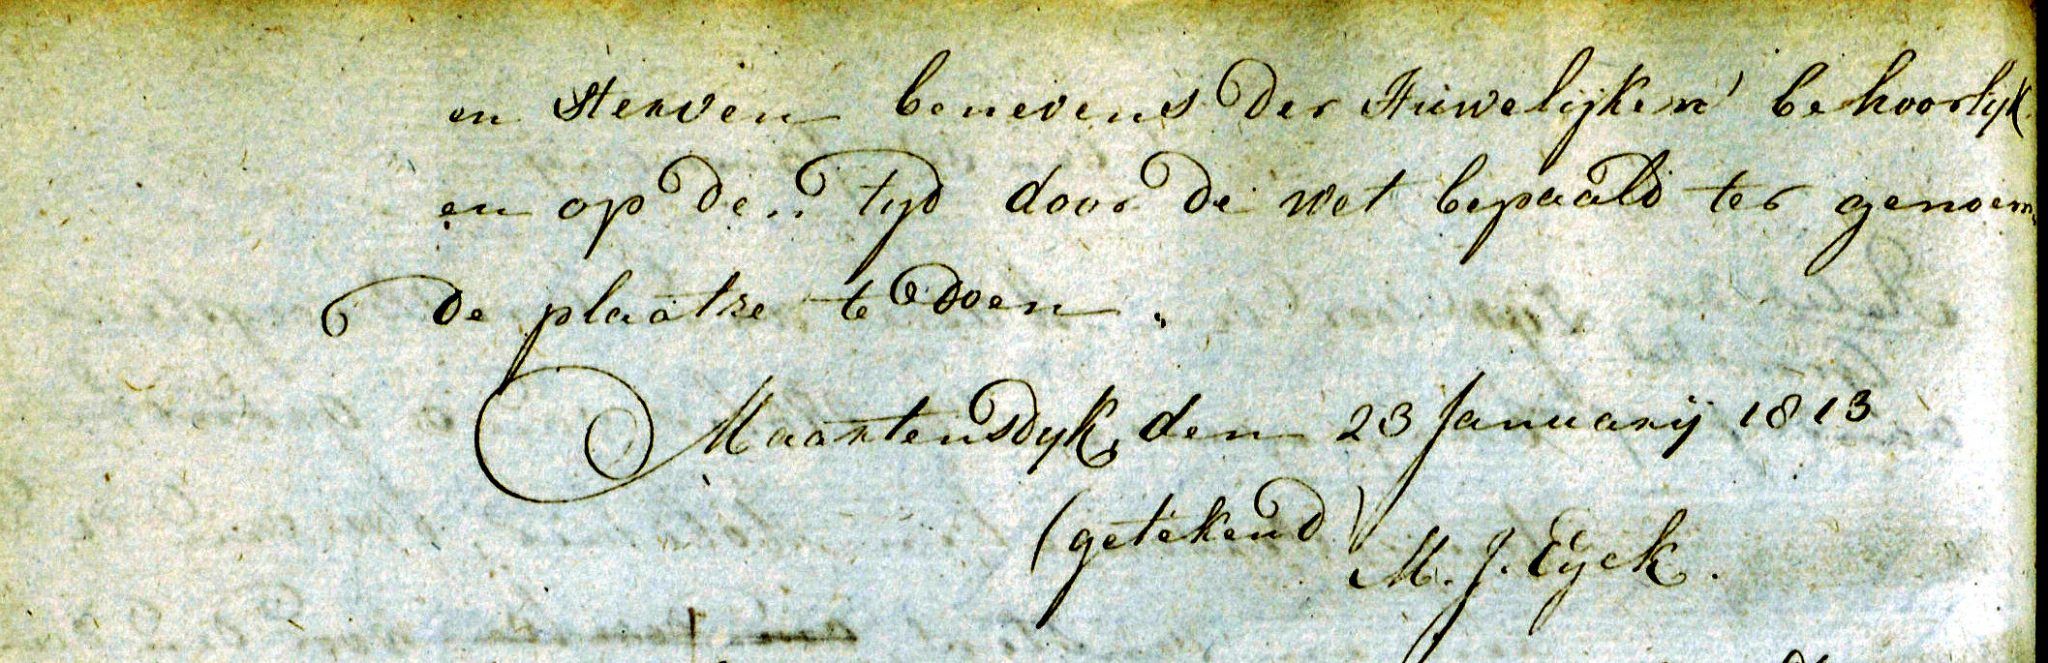 en sterven benevens der Huwelijken behoorlijk
en op den tyd door de wet bepaald ter genoem
de plaatse te doen.
Maartensdyk, den 23 Januarij 1813
(getekend) M. J. Eyck.